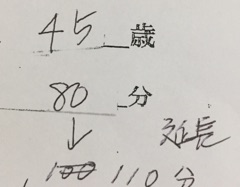 45歳
80分
↓ 延長
100 110分